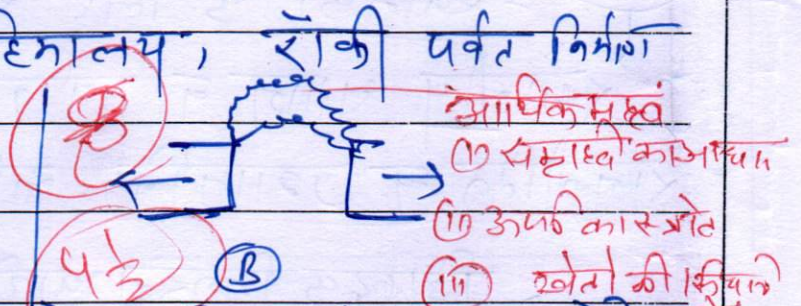 हिमालय, रॉकी पर्वत निर्माण
आर्थिक महत्वं
(i) का आधार
(ii) ऊर्जा का स्त्रोत
(iii) खेतों की
4 1/2
B